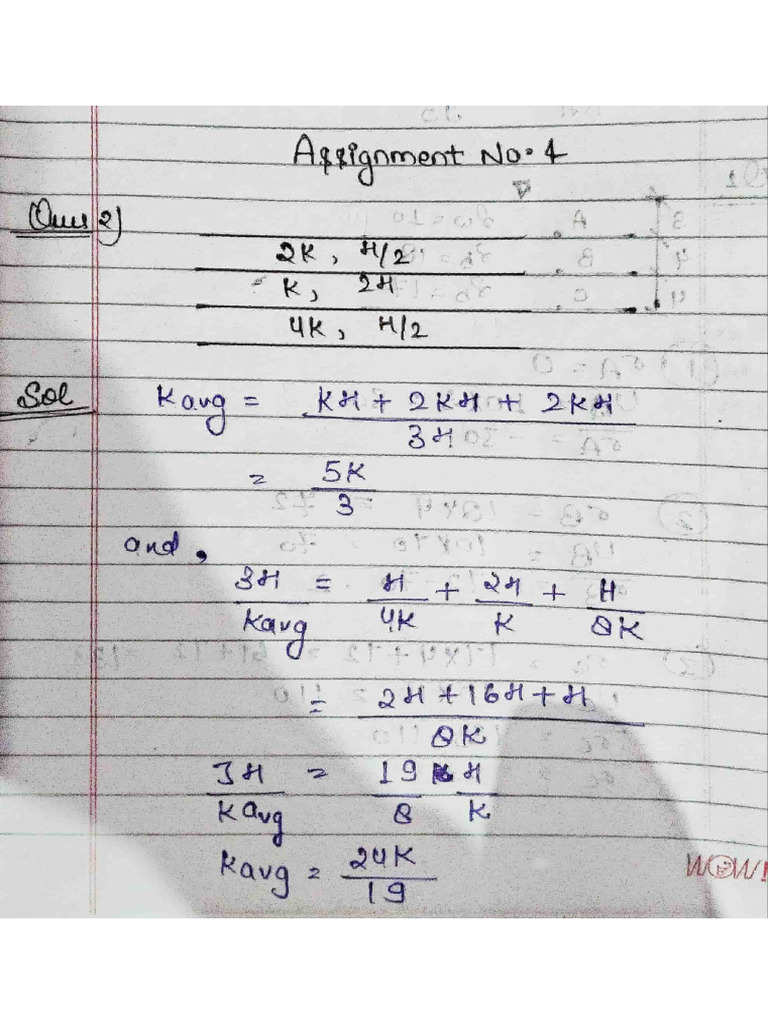 Assignment No. 4
Ques 2)
2K, H/2
K, 2H
4K, H/2
Sol
Kavg = KH + 2KH + 2KH / 3H
= 5K / 3
and,
3H / Kavg = H / 4K + 2H / K + H / 8K
= 2H + 16H + H / 8K
3H / Kavg = 19 / 8 H / K
Kavg = 24K / 19
WOW!